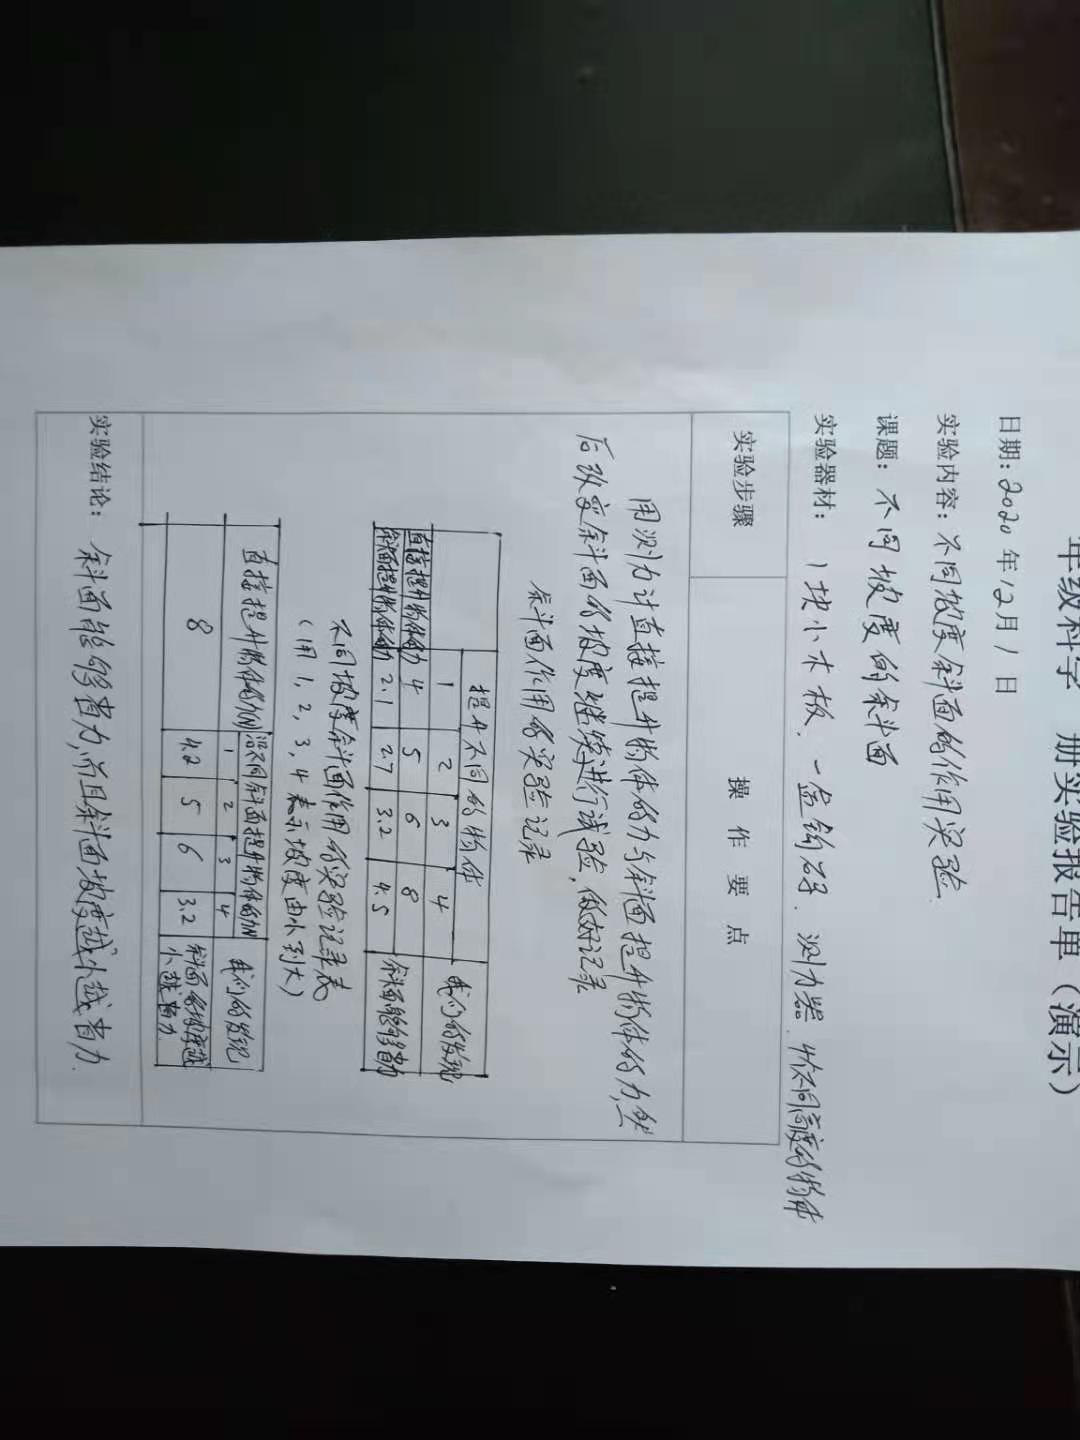 年级科学 册实验报告单（演示）
日期：2020年12月1日
实验内容：不同坡度斜面的作用实验
课题：不同坡度的斜面
实验器材：1块小木板、一盒钩码、测力器、4个不同高度的物体
实验步骤 操作要点
用测力计直接提升物体的力与斜面提升物体的力，然
后改变斜面的坡度继续进行试验，做好记录
斜面作用的实验记录
提升不同的物体 我们的发现
1 2 3 4
直接提升物体的力 4 5 6 8 斜面能够省力
斜面提升物体的力 2.1 2.7 3.2 4.5
不同坡度斜面作用的实验记录表
（用1，2，3，4表示坡度由小到大）
直接提升物体的力(N) 沿不同斜面提升物体的力(N) 我们的发现
1 2 3 4
8 4.2 5 6 3.2 斜面的坡度越
小越省力
实验结论：斜面能够省力，而且斜面坡度越小越省力.